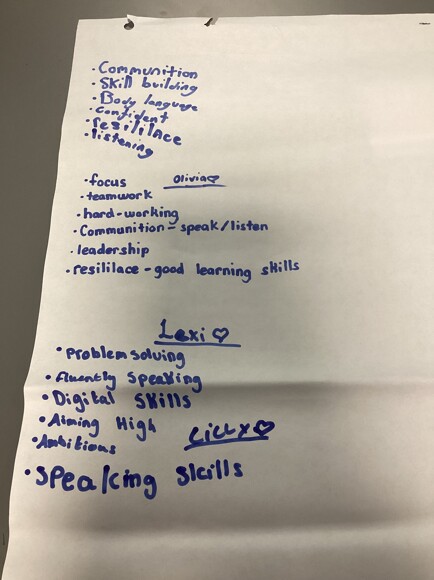 • Communition
• Skill building
• Body language
• confident
• resililace
• listening
• focus Olivia♡
• teamwork
• hard-working
• Communition - speak/listen
• leadership
• resililace - good learning skills
Lexi ♡
• Problem solving
• fluently speaking
• Digital Skills
• Aiming High
• Ambitious Lilly♡
• Speaking skills